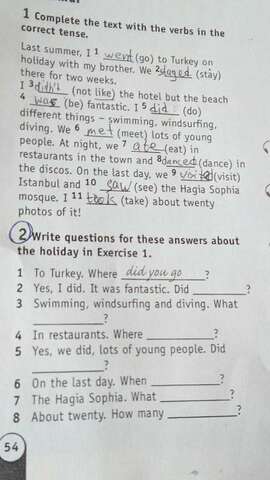 1 Complete the text with the verbs in the
correct tense.
Last summer, I 1 went (go) to Turkey on
holiday with my brother. We 2 stayed (stay)
there for two weeks.
I 3 didn't (not like) the hotel but the beach
4 was (be) fantastic. I 5 did (do)
different things – swimming, windsurfing,
diving. We 6 met (meet) lots of young
people. At night, we 7 ate (eat) in
restaurants in the town and 8 danced (dance) in
the discos. On the last day, we 9 (visit)
Istanbul and 10 saw (see) the Hagia Sophia
mosque. I 11 took (take) about twenty
photos of it!
2 Write questions for these answers about
the holiday in Exercise 1.
1 To Turkey. Where did you go ?
2 Yes, I did. It was fantastic. Did ?
3 Swimming, windsurfing and diving. What
?
4 In restaurants. Where ?
5 Yes, we did, lots of young people. Did
?
6 On the last day. When ?
7 The Hagia Sophia. What ?
8 About twenty. How many ?
54